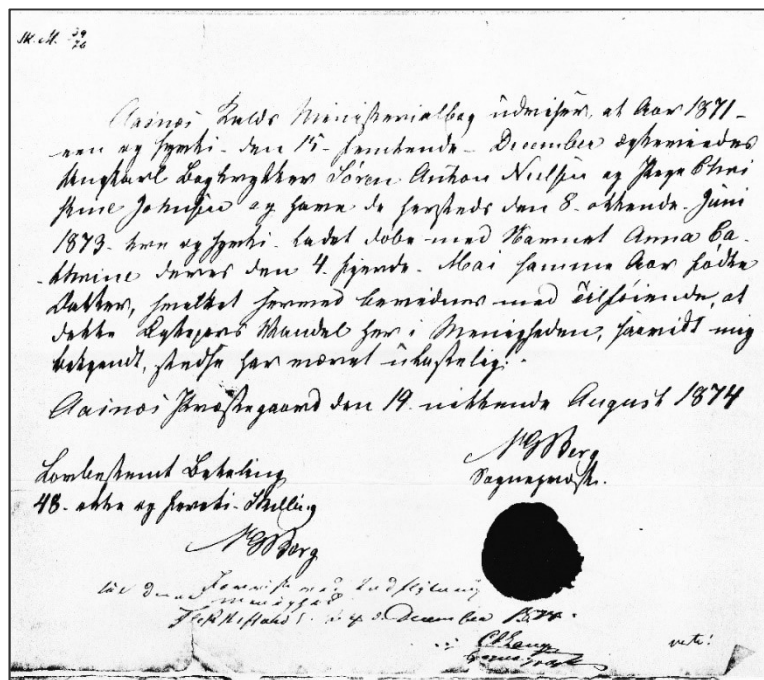 Aainæs Kalds Ministerialbog udviser, at Aar 1871 -
een og syvti - den 15 - femtende - December ægteviedes
Ungkarl Bogtrykker Søren Anton Nielsen og Pige Chri
stine Johnsen og have de hersteds den 8. ottende Juni
1873 - tre og syvti - ladet døbe med Navnet Anna Ca-
thrine deres den 4. fjerde - Mai samme Aar fødte
Datter, hvilket herved bevidnes med Tilføiende, at
dette Ægtepars Vandel her i Menigheden, saavidt mig
bekjendt, stedse har været ulastelig.
Aainæs Præstegaard den 19. nittende August 1874
NG Berg
Sognepræst.
Lovbestemt Betaling
48 - otte og førreti - Skilling
NG Berg
December